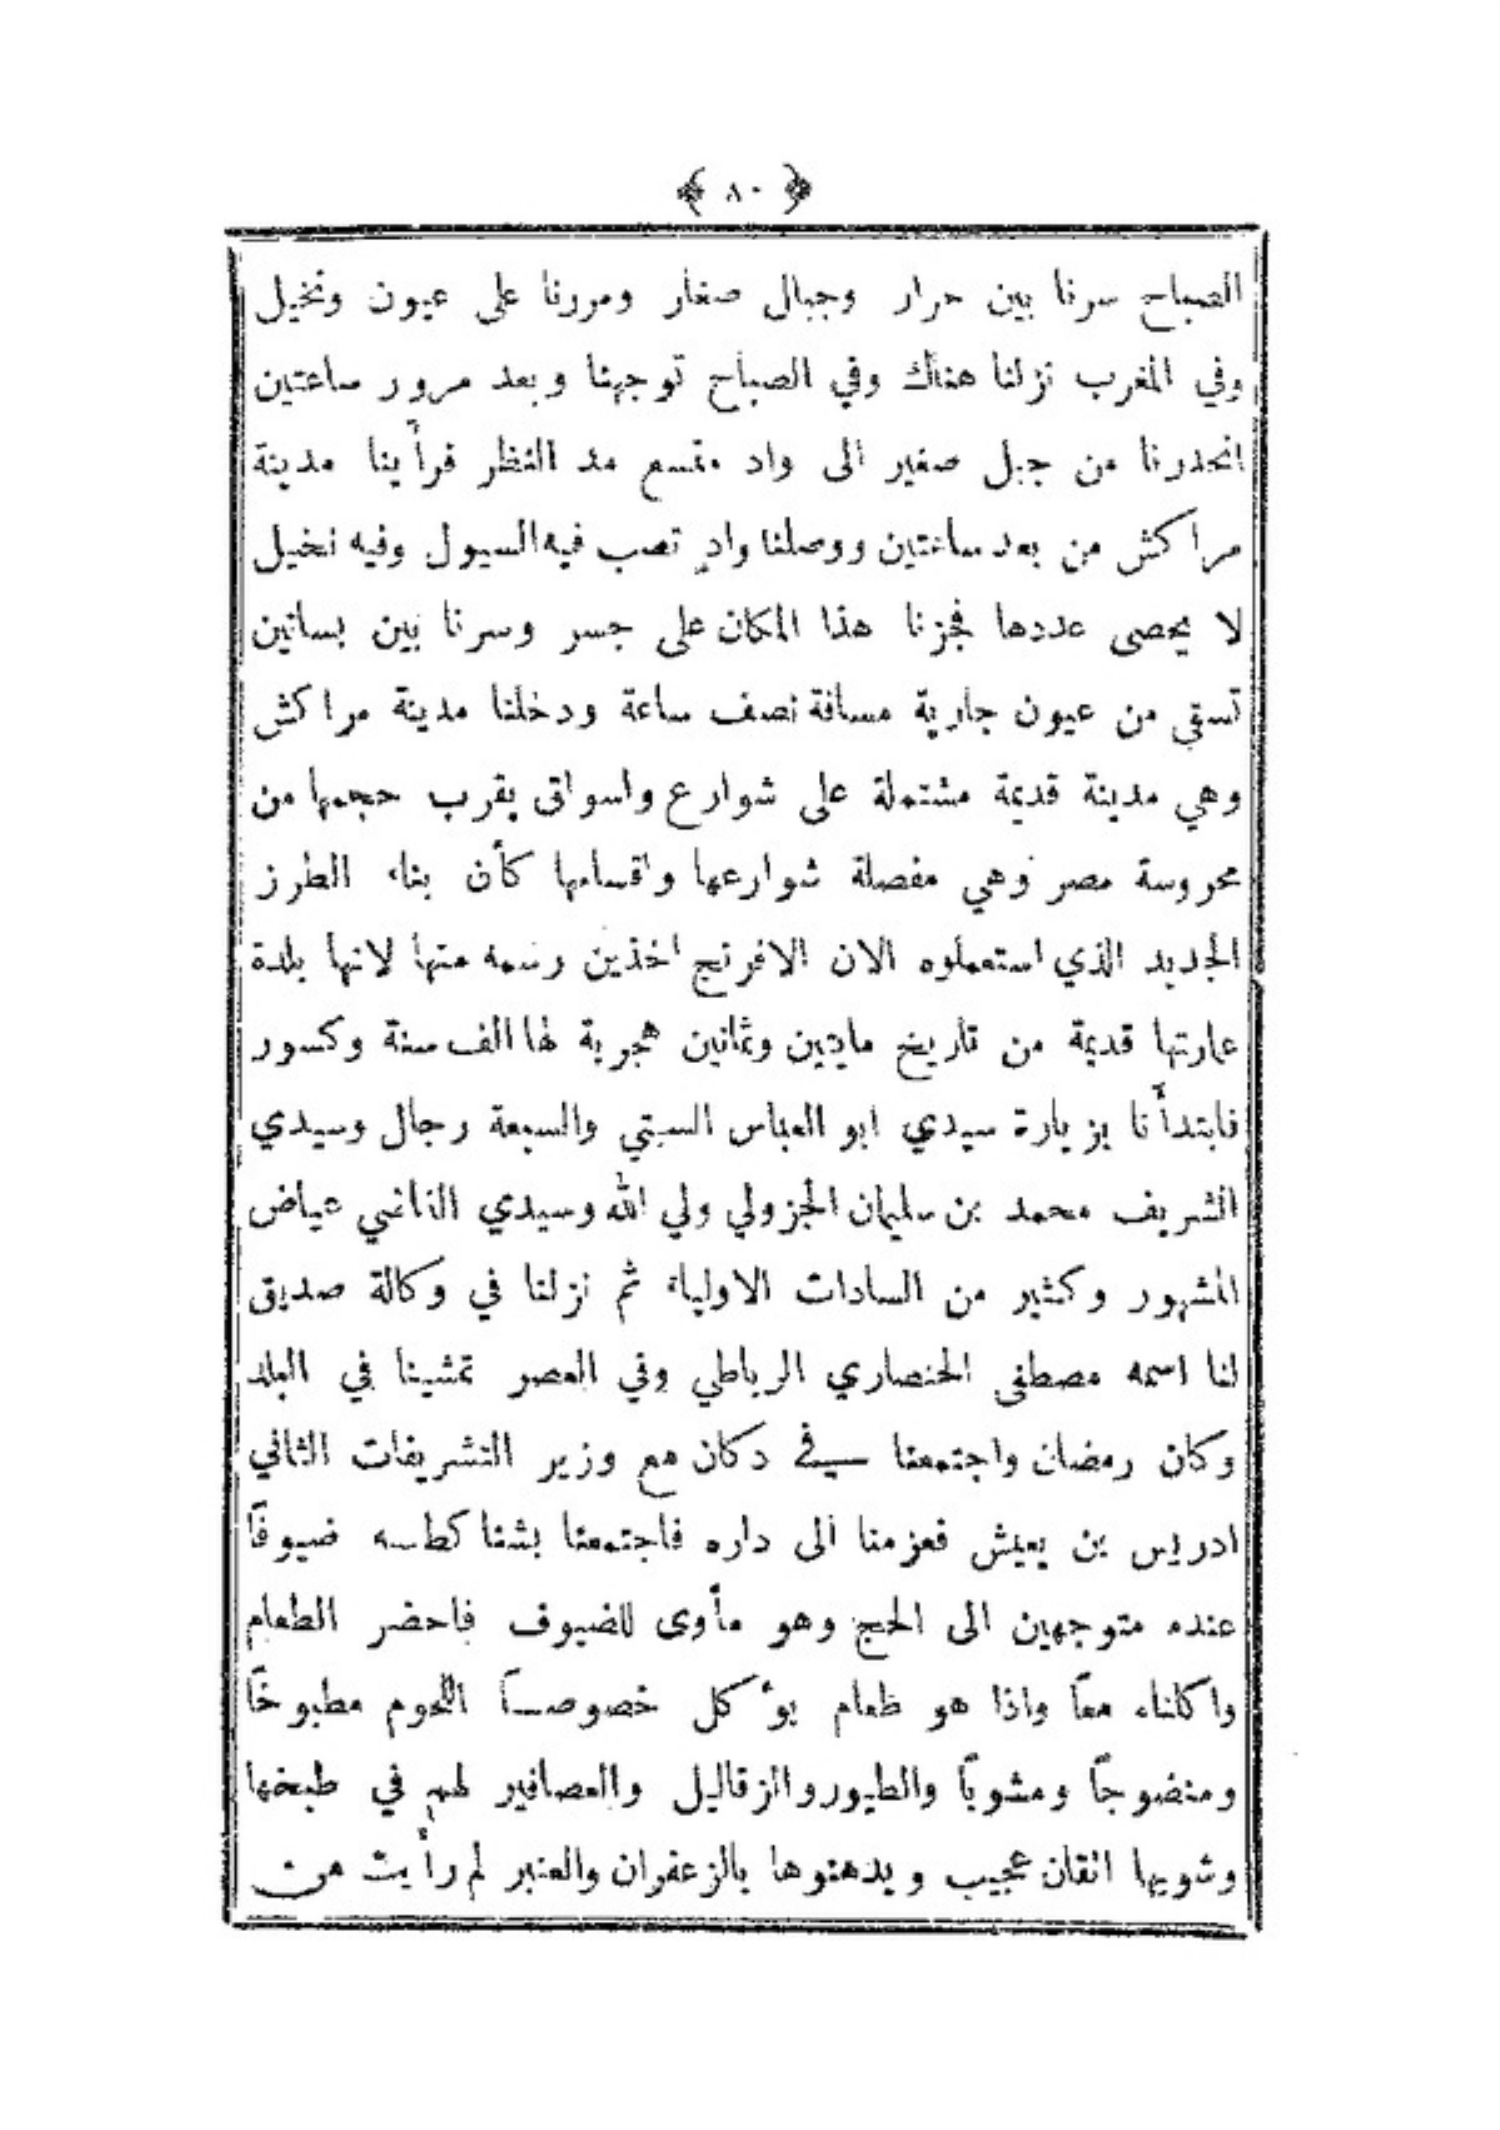 ﴿ ٨٠ ﴾
الصباح سرنا بين حرار وجبال صغار ومررنا على عيون ونخيل
وفي المغرب نزلنا هناك وفي الصباح توجهنا وبعد مرور ساعتين
انحدرنا من جبل صغير الى واد متسع مد النظر فرأينا مدينة
مراكش من بعد ساعتين ووصلنا وادٍ تصب فيه السيول وفيه نخيل
لا يحصى عددها فجزنا هذا المكان على جسر وسرنا بين بساتين
تسقى من عيون جارية مسافة نصف ساعة ودخلنا مدينة مراكش
وهي مدينة قديمة مشتملة على شوارع واسواق يقرب حجمها من
محروسة مصر وهي مفصلة شوارعها واقسامها كأن بناء الطرز
الجديد الذي استعملوه الان الافرنج اخذين رسمه منها لانها بلدة
عمارتها قديمة من تاريخ مايتين وثمانين هجرية لها الف سنة وكسور
فابتدأنا بزيارة سيدي ابو العباس السبتي والسبعة رجال وسيدي
الشريف محمد بن سليمان الجزولي ولي الله وسيدي القاضي عياض
المشهور وكثير من السادات الاولياء ثم نزلنا في وكالة صديق
لنا اسمه مصطفى الحنصاري الرباطي وفي العصر تمشينا في البلد
وكان رمضان واجتمعنا في دكان مع وزير التشريفات الثاني
ادريس بن يعيش فعزمنا الى داره فاجتمعنا بشناكطـه ضيوفًا
عنده متوجهين الى الحج وهو مأوى للضيوف فاحضر الطعام
واكلناء معًا واذا هو طعام يؤكل خصوصـاً اللحوم مطبوخًا
ومنضوجًا ومشويًا والطيور والزقاليل والعصافير لهم في طبخها
وشويها اتقان عجيب ويدهنوها بالزعفران والعنبر لم رأيت من